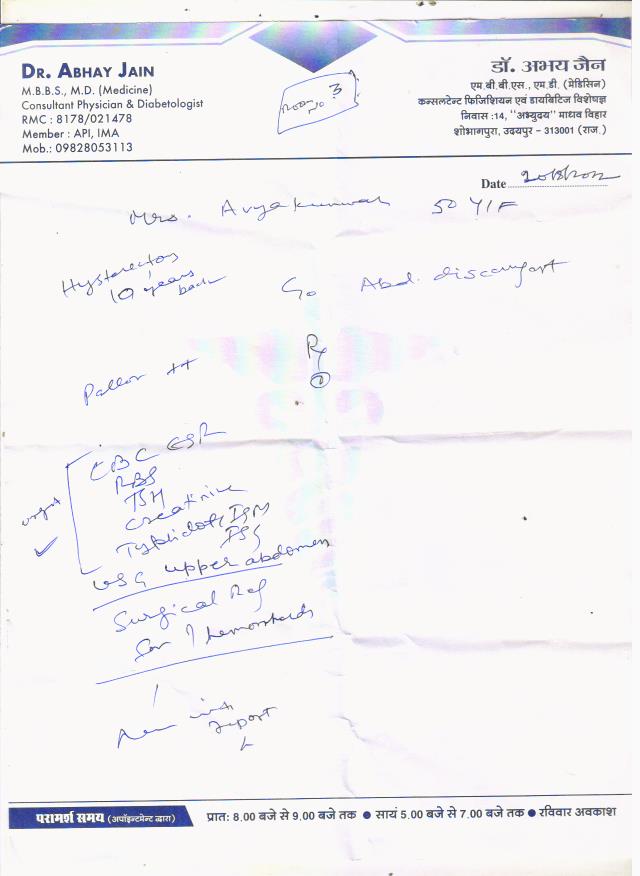 DR. ABHAY JAIN
M.B.B.S., M.D. (Medicine)
Consultant Physician & Diabetologist
RMC : 8178/021478
Member : API, IMA
Mob.: 09828053113
Room no 3
डॉ. अभय जैन
एम.बी.बी.एस., एम.डी. (मेडिसिन)
कन्सलटेन्ट फिजिशियन एवं डायबिटिज विशेषज्ञ
निवास :14, "अभ्युदय" माधव विहार
शोभागपुरा, उदयपुर – 313001 (राज.)
Date
Mrs. 50 Y/F
10 years
back
C/o Abd. discomfort
Rx
Pallor ++
CBC ESR
RBS
TSH
Creatinine
Typhidot IgM
IgG
USG upper abdomen
urgent
Surgical Ref
for ? hemorrhoids
with
report
परामर्श समय (अपॉइन्टमेन्ट द्वारा) प्रात: 8.00 बजे से 9.00 बजे तक ● सायं 5.00 बजे से 7.00 बजे तक ● रविवार अवकाश